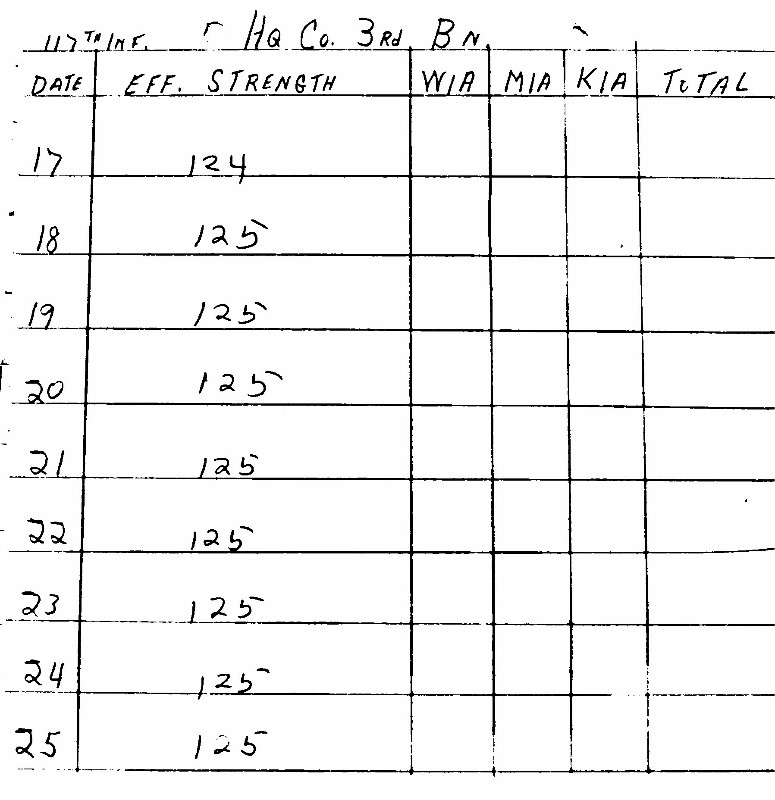 117TH INF. HQ Co. 3Rd. BN.
DATE EFF. STRENGTH W/A M/A K/A TOTAL
17 124
18 125
19 125
20 125
21 125
22 125
23 125
24 125
25 125